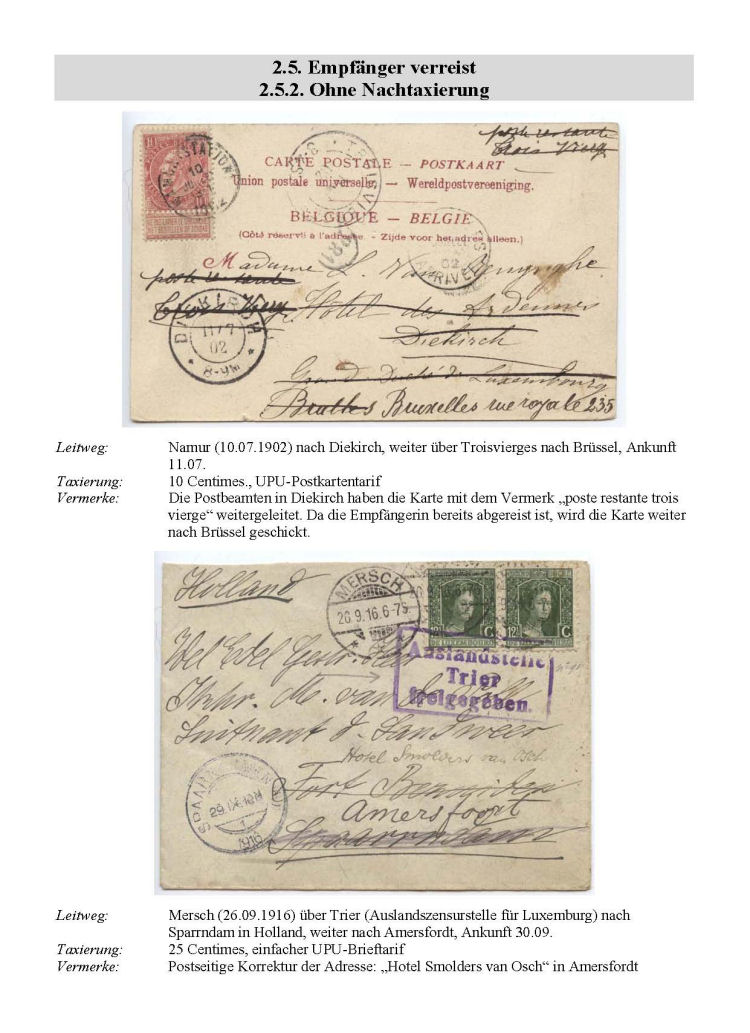 2.5. Empfänger verreist
2.5.2. Ohne Nachtaxierung
poste restante
Trois Vierg
CARTE POSTALE – POSTKAART
Union postale universelle. – Wereldpostvereeniging.
BELGIQUE – BELGIE
(Côté réservé à l'adresse. – Zijde voor het adres alleen.)
Madame
poste restante
Trois Vierg Hôtel des Ardennes
DIEKIRCH
11/7
02
8-9
Diekirch
Grand Duché de Luxembourg
Bruxelles rue royale 235
Leitweg: Namur (10.07.1902) nach Diekirch, weiter über Troisvierges nach Brüssel, Ankunft
11.07.
Taxierung: 10 Centimes., UPU-Postkartentarif
Vermerke: Die Postbeamten in Diekirch haben die Karte mit dem Vermerk „poste restante trois
vierge“ weitergeleitet. Da die Empfängerin bereits abgereist ist, wird die Karte weiter
nach Brüssel geschickt.
Holland
MERSCH
26.9.16.6-7S
12½ C 12½ C
Auslandstelle
Trier
freigegeben.
Wel Edel
Jhr. M. van
Luitnant d. Landweer
Hotel Smolders van Osch
Fort
Amersfoort
Spaarndam
1916
Leitweg: Mersch (26.09.1916) über Trier (Auslandszensurstelle für Luxemburg) nach
Sparrndam in Holland, weiter nach Amersfordt, Ankunft 30.09.
Taxierung: 25 Centimes, einfacher UPU-Brieftarif
Vermerke: Postseitige Korrektur der Adresse: „Hotel Smolders van Osch“ in Amersfordt